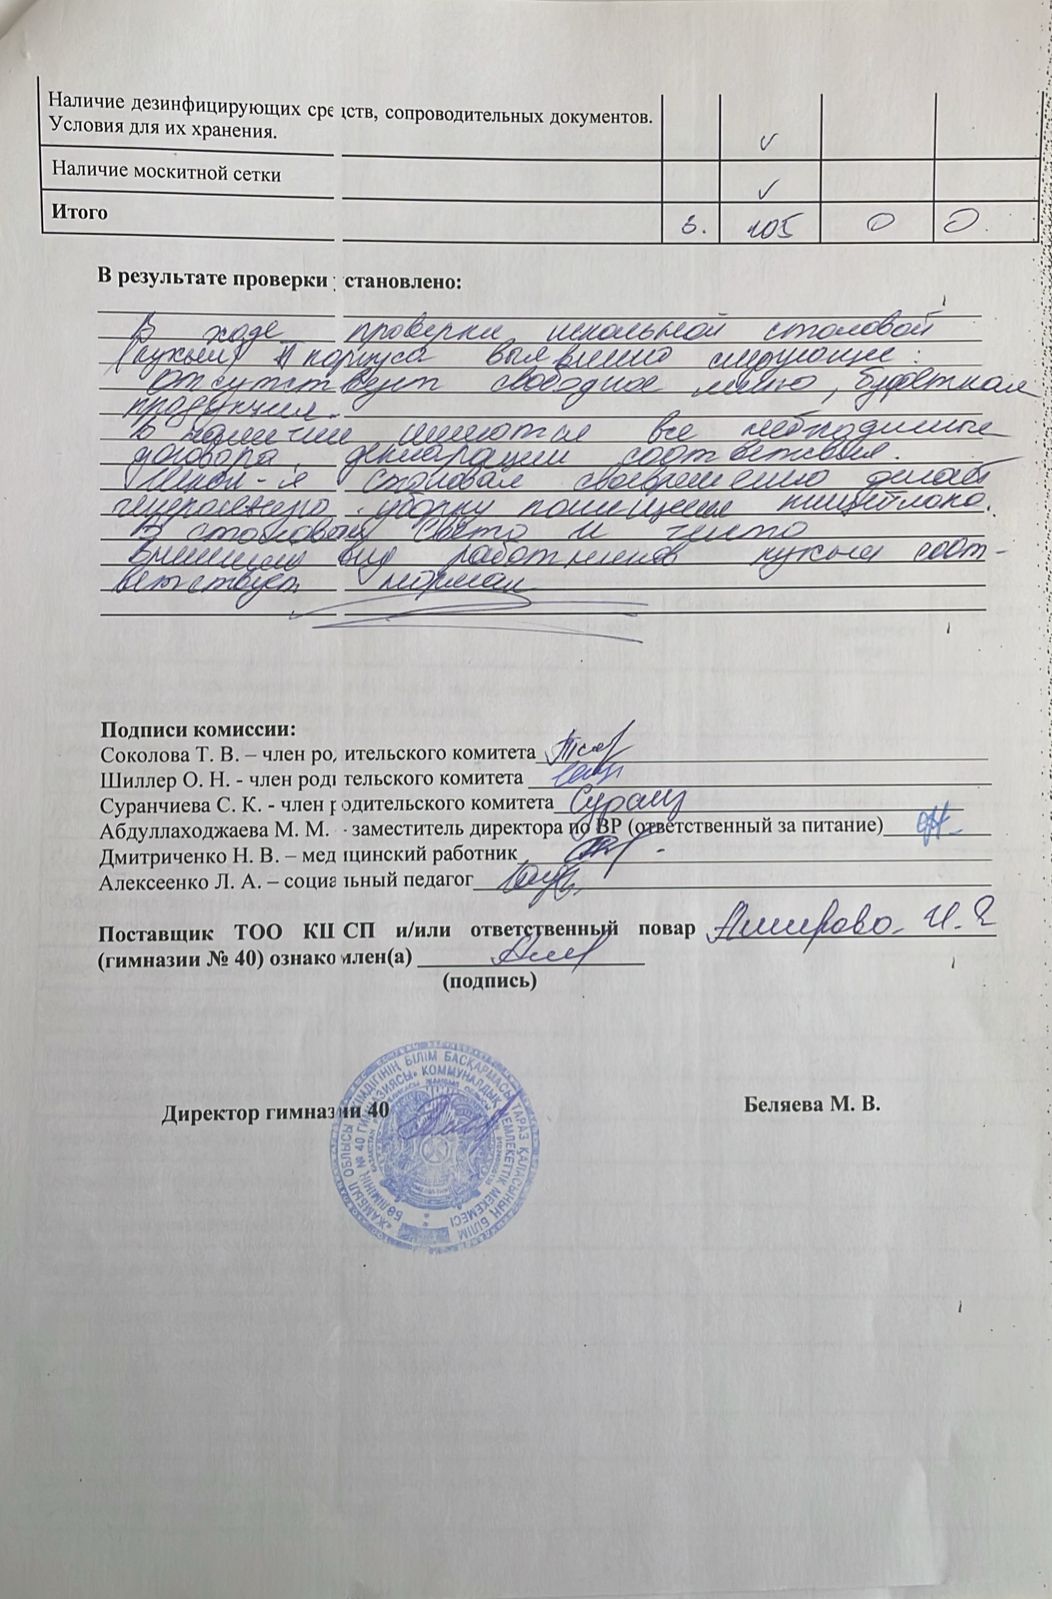 Наличие дезинфицирующих средств, сопроводительных документов.
Условия для их хранения.
Наличие москитной сетки
Итого 105 0 0.
В результате проверки установлено:
В ходе проверки школьной столовой
(кухни) корпуса выявлено следующие:
Отсутствует свободное меню, буфетная
продукция.
В наличии имеются все необходимые
договора, декларации соответствия.
столовая своевременно делает
уборку помещения пищеблока.
В столовой светло и чисто
Внешний вид работников кухни соот-
ветствует нормам
Подписи комиссии:
Соколова Т. В. – член родительского комитета
Шиллер О. Н. - член родительского комитета
Суранчиева С. К. - член родительского комитета
Абдуллаходжаева М. М. - заместитель директора по ВР (ответственный за питание)
Дмитриченко Н. В. – медицинский работник
Алексеенко Л. А. – социальный педагог
Поставщик ТОО КШСП и/или ответственный повар Амирова
(гимназии № 40) ознакомлен(а)
(подпись)
Директор гимназии 40 Беляева М. В.
«ЖАМБЫЛ ОБЛЫСЫ ӘКІМДІГІНІҢ БІЛІМ БАСҚАРМАСЫ ТАРАЗ ҚАЛАСЫНЫҢ БІЛІМ
БӨЛІМІНІҢ № 40 ГИМНАЗИЯСЫ» КОММУНАЛДЫҚ МЕМЛЕКЕТТІК МЕКЕМЕСІ